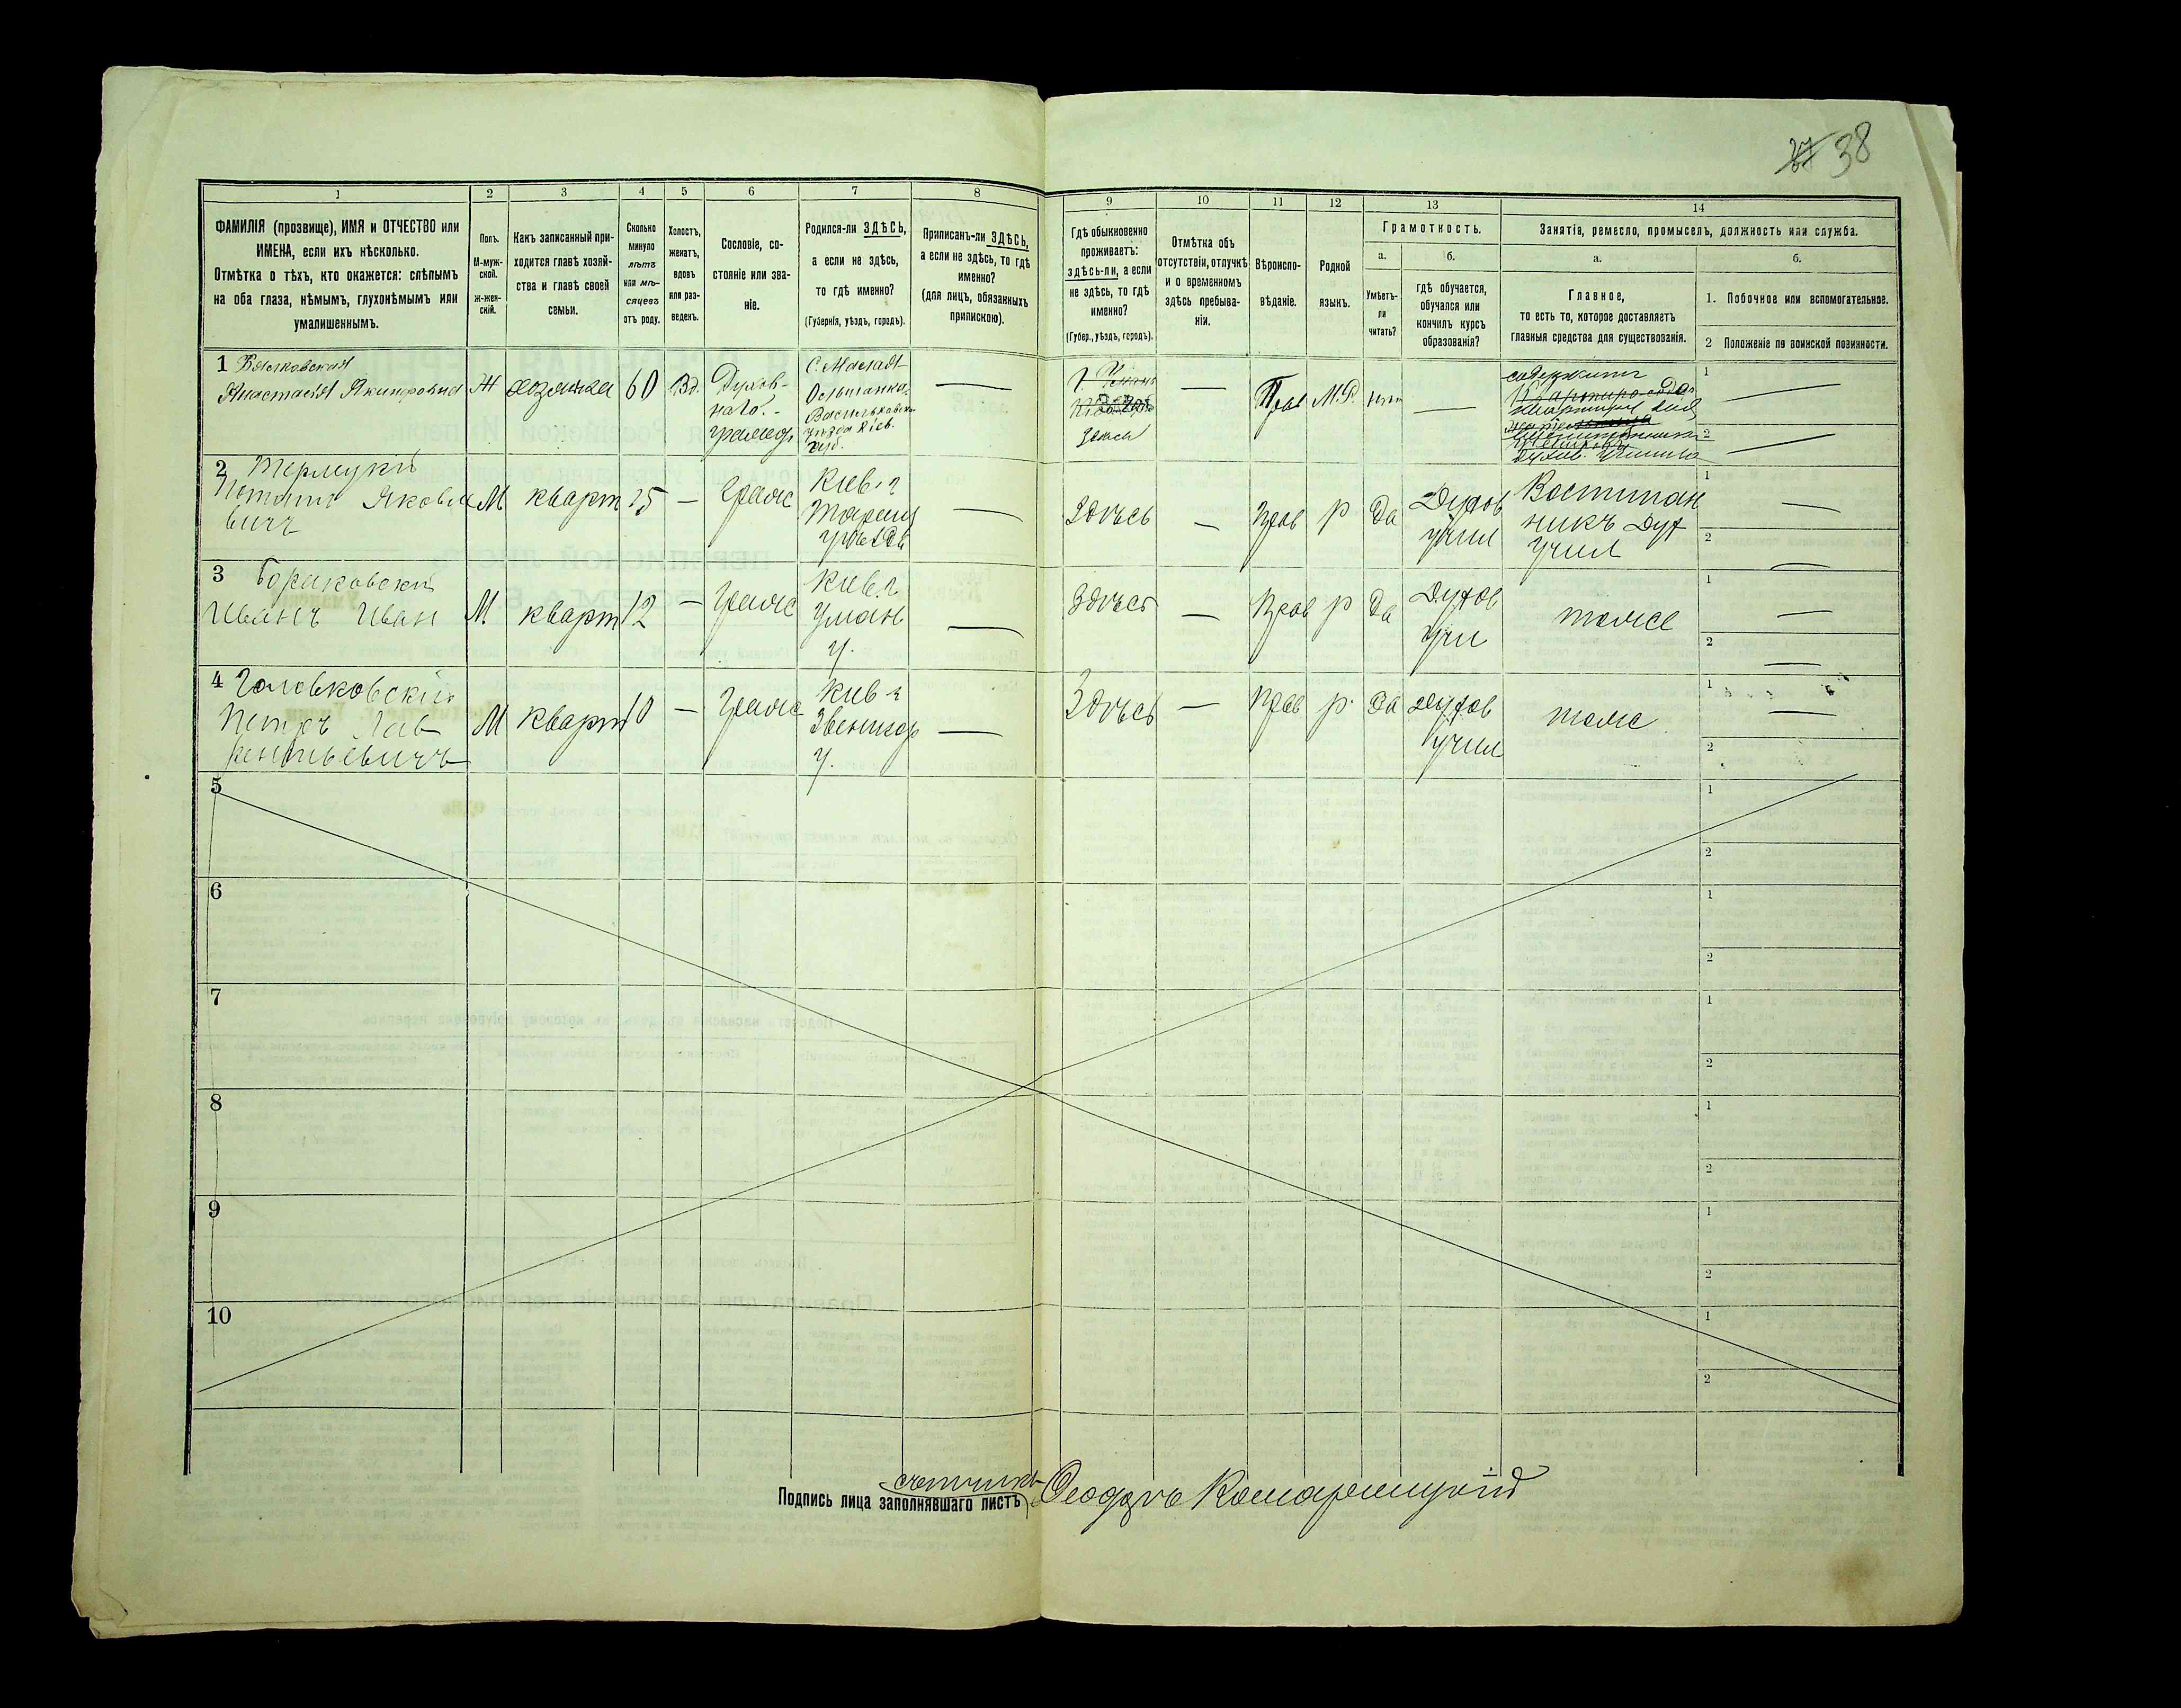 38
1 2 3 4 5 6 7 8 9 10 11 12 13 14
ФАМИЛІЯ (прозвище), ИМЯ и ОТЧЕСТВО или
ИМЕНА, если ихъ нѣсколько.
Отмѣтка о тѣхъ, кто окажется: слѣпымъ
на оба глаза, нѣмымъ, глухонѣмымъ или
умалишеннымъ.
Полъ.
М-муж-
ской.
ж-жен-
скій.
Какъ записанный при-
ходится главѣ хозяй-
ства и главѣ своей
семьи.
Сколько
минуло
лѣтъ
или мѣ-
сяцевъ
отъ роду.
Холостъ,
женатъ,
вдовъ
или раз-
веденъ.
Сословіе, со-
стояніе или зва-
ніе.
Родился-ли ЗДѢСЬ,
а если не здѣсь,
то гдѣ именно?
(Губернія, уѣздъ, городъ).
Приписанъ-ли ЗДѢСЬ,
а если не здѣсь, то гдѣ
именно?
(для лицъ, обязанныхъ
припискою).
Гдѣ обыкновенно
проживаетъ:
здѣсь-ли, а если
не здѣсь, то гдѣ
именно?
(Губер., уѣздъ, городъ).
Отмѣтка объ
отсутствіи, отлучкѣ
и о временномъ
здѣсь пребыва-
ніи.
Вѣроиспо-
вѣданіе.
Родной
языкъ.
Грамотность.
а.
Умѣетъ-
ли
читать?
б.
гдѣ обучается,
обучался или
кончилъ курсъ
образованія?
Занятіе, ремесло, промыселъ, должность или служба.
а.
Главное,
то есть то, которое доставляетъ
главныя средства для существованія.
б.
1. Побочное или вспомогательное.
2 Положеніе по воинской повинности.
1
Анастасія
Ж хозяйка 60 Вд.
Духов-
наго
Васильковск.
уѣзда Кіев.
губ.
здѣсь
Прав М.Р. нѣтъ
содержитъ
1
2
2
Яковле
вичъ
М кварт 15 — гражд
Кіев. г
Таращ
уѣзда
—
Здѣсь — прав р да
Духов
учил
Воспитан
никъ Дух
учил
1
2
3
Иванъ Иван
М кварт 12 — гражд
Кіев. г
Уман
у.
—
Здѣсь — прав р да
Духов
учи
тоже
1
2
4 Головковскій
Петръ Лав
рентьевичъ
М кварт 10 — гражд
Кіев г
Звенигор
у.
—
Здѣсь — прав р. да
Духов
учил
тоже
1
2
5
1
2
6
1
2
7
1
2
8
1
2
9
1
2
10
1
2
счетчикъ
Подпись лица заполнявшаго листъ Ѳеодоръ Комарецкій